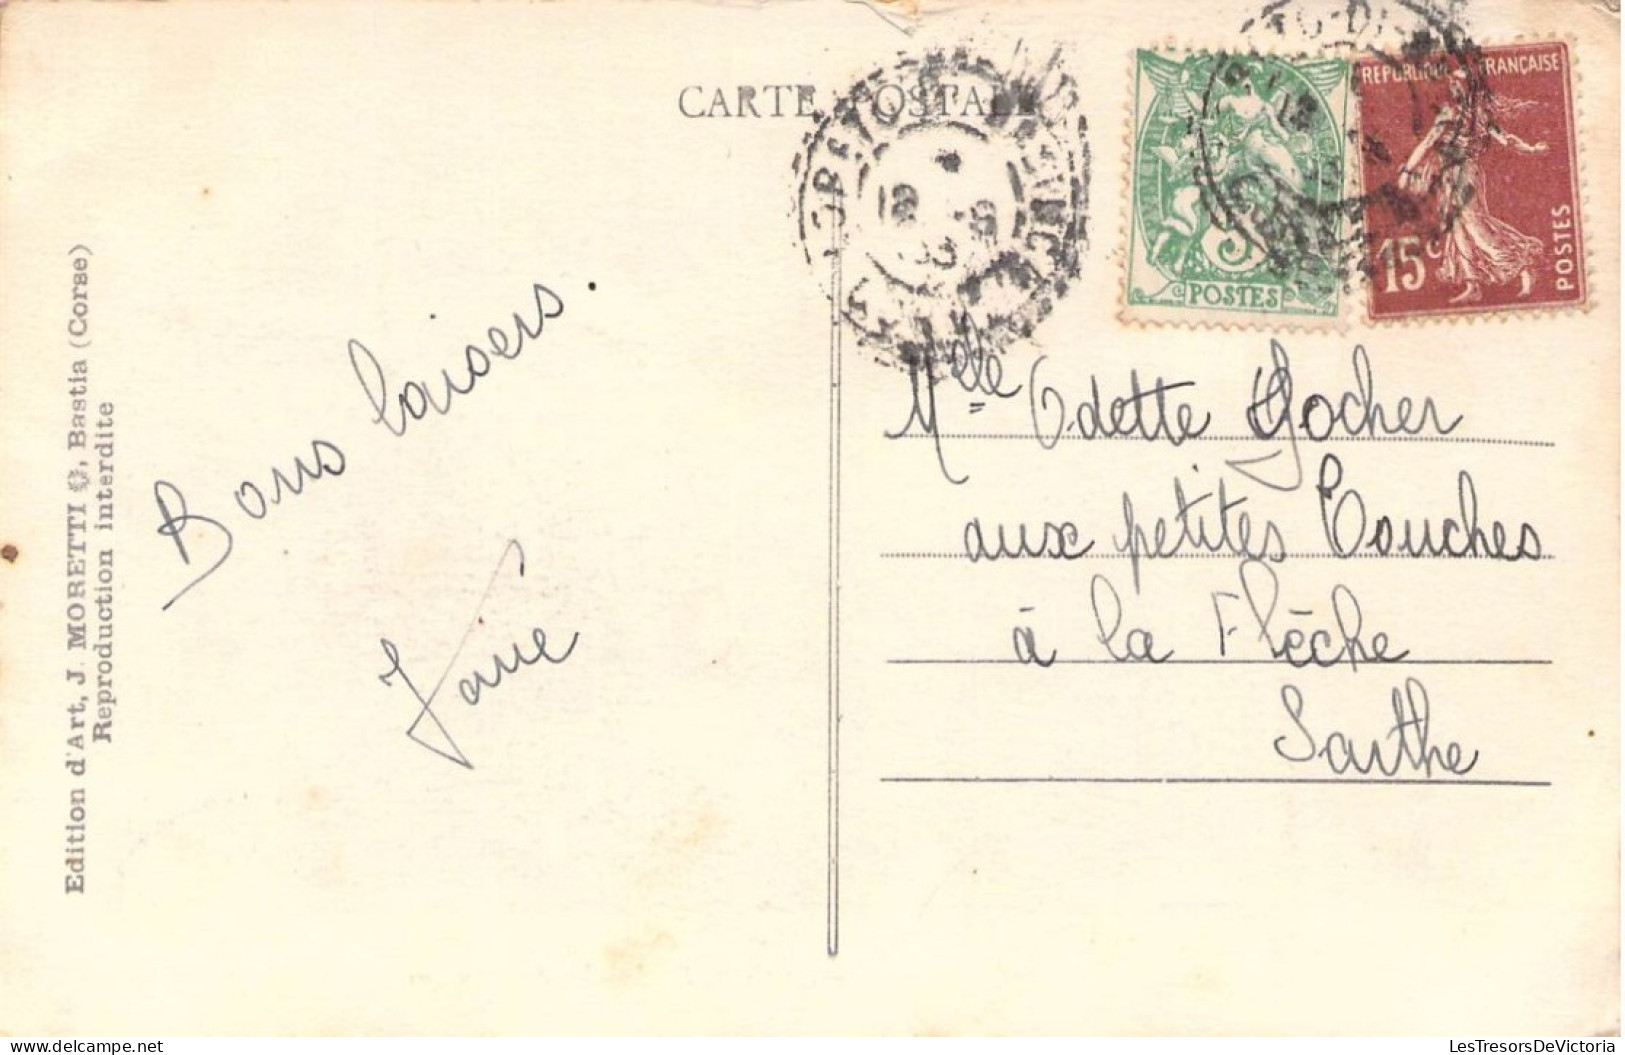 CARTE POSTALE
Edition d'Art, J. MORETTI, Bastia (Corse)
Reproduction interdite
Bons baisers.
REPUBLIQUE FRANÇAISE
15c
POSTES
5
POSTES
18
Mlle Odette Gocher
aux petites Touches
à la Flèche
Sarthe
LesTresorsDeVictoria.com